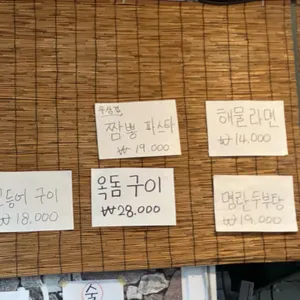 우삼겹
짬뽕 파스타
₩19,000
해물라면
₩14,000
고등어 구이
₩18,000
옥돔 구이
₩28,000
명란두부탕
₩19,000